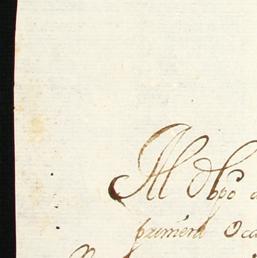 Al Obpo
primera Oca